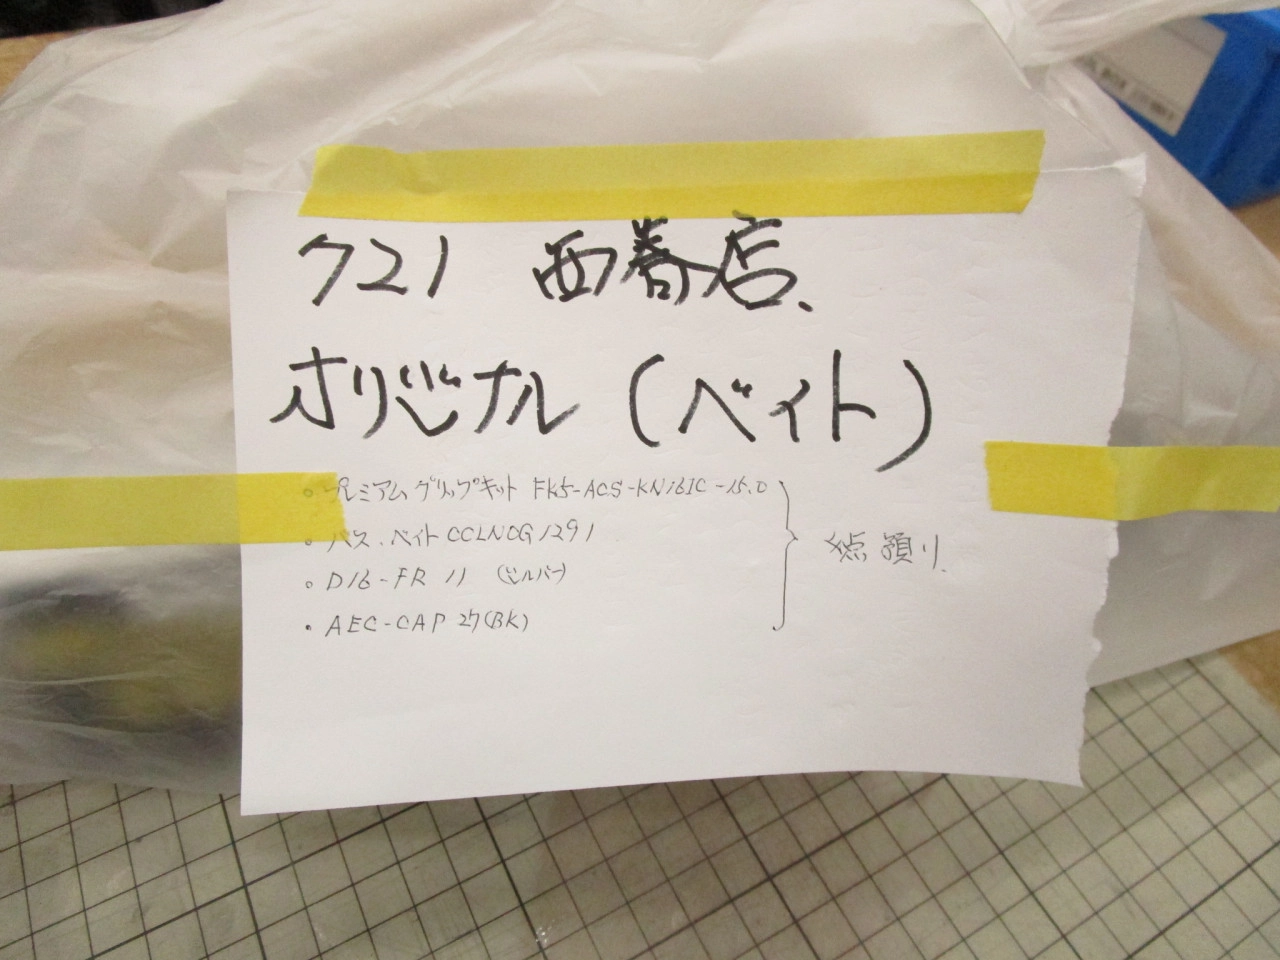 721 西春店、
オリジナル (ベイト)
• プレミアムグリップキット FK5-ACS-KN16IC-15.0
• バス、ベイト CCLNOG1291
• D16-FR 11 (シルバー)
• AEC-CAP 27(BK)
4点 預り、